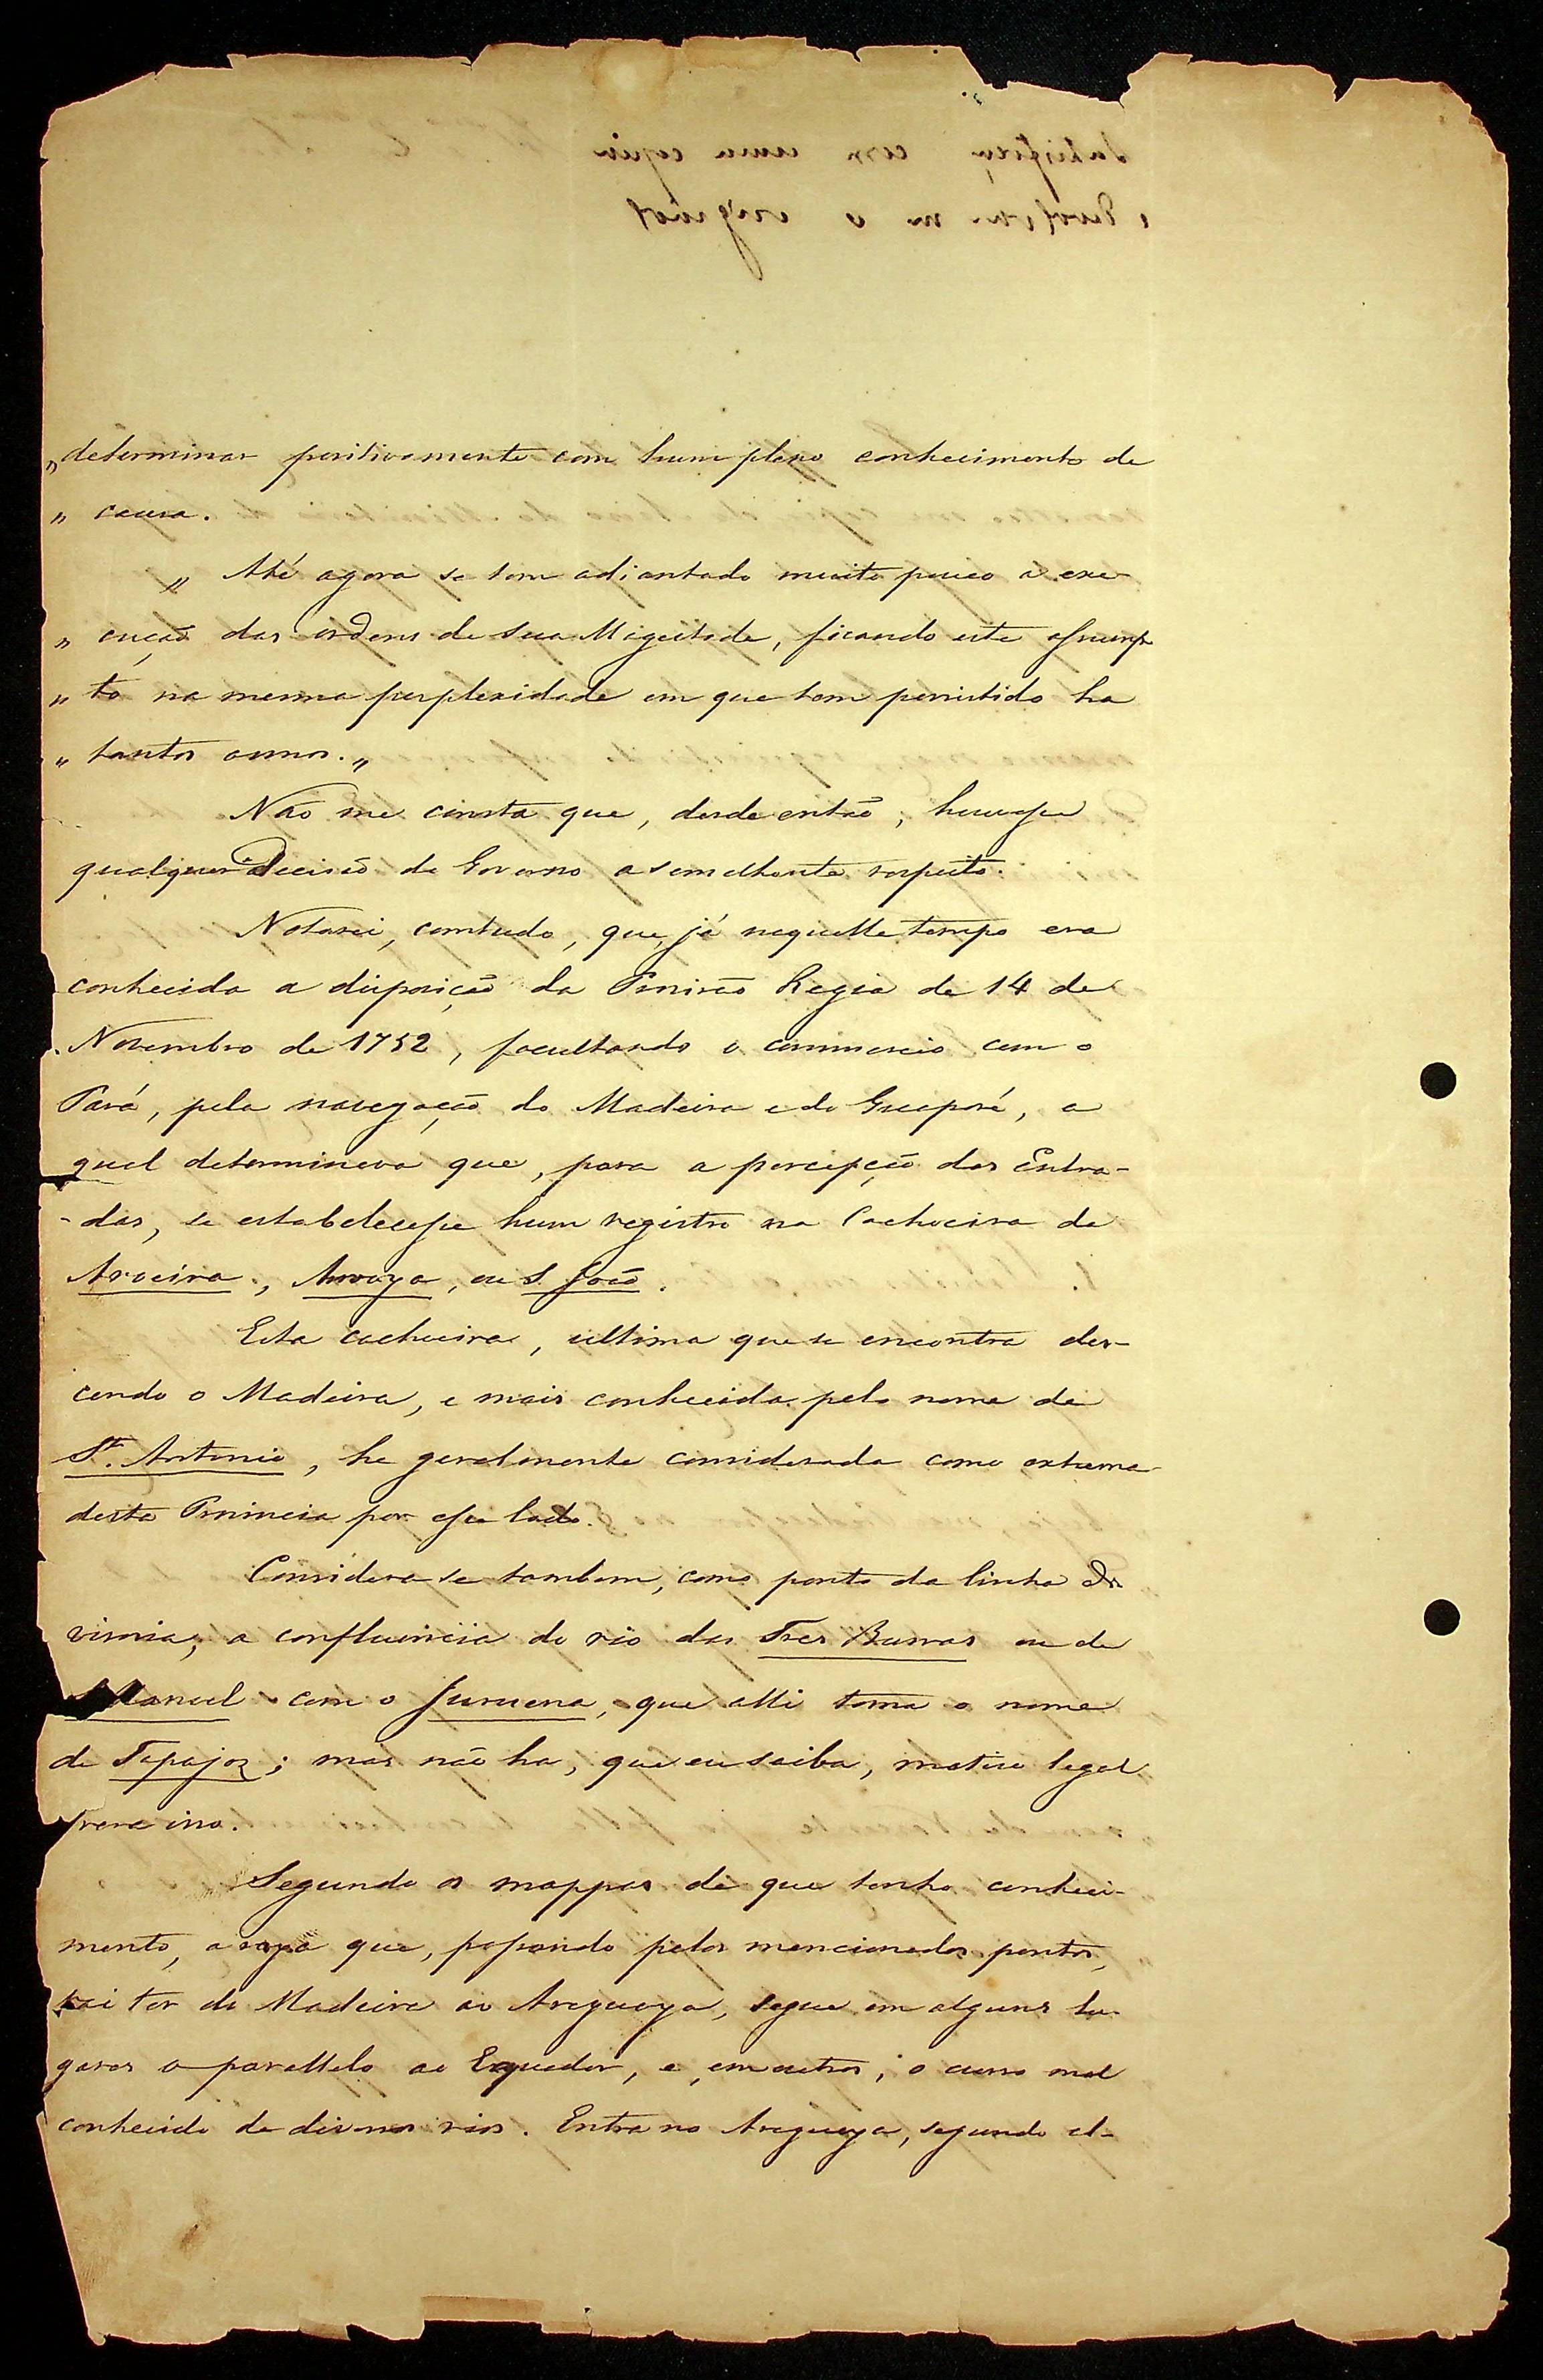 „ determinar positivamente com hum pleno conhecimento de
„ causa.
„ Até agora se tem adiantado muito pouco a exe-
„ cução das ordens de Sua Magestade, ficando este assump
„ to na mesma perplexidade em que tem persistido ha
„ tantos annos. „
Não me consta que, desde então, houvesse
qualquer Decisão do Governo a semelhante respeito.
Notarei, comtudo, que, já naquelle tempo era
conhecida a disposição da Provisão Regia de 14 de
Novembro de 1752, facultando o commercio com o
Pará, pela navegação do Madeira e do Guaporé, a
qual determinava que, para a percepção das Entra-
- das, se estabelecesse hum registro na Cachoeira da
Aroeira, Arroya, ou S. João.
Esta cachoeira, ultima que se encontra des-
cendo o Madeira, e mais conhecida pelo nome de
Sto. Antonio, he geralmente considerada como extrema
desta Provincia por esse lado.
Considera-se tambem, como ponto da linha di
visoria, a confluencia do rio das Tres Barras ou de
Manoel com o Juruena, que alli toma o nome
de Tapajoz; mas não ha, que eu saiba, motivo legal
para isso.
Segundo os mappas de que tenho conheci-
mento, a raya que, passando pelos mencionados pontos,
vai ter do Madeira ao Araguaya, segue em alguns lu-
gares o parallelo ao Equador, e, em outros, o curso mal
conhecido de diversos rios. Entra no Araguaya, segundo al-